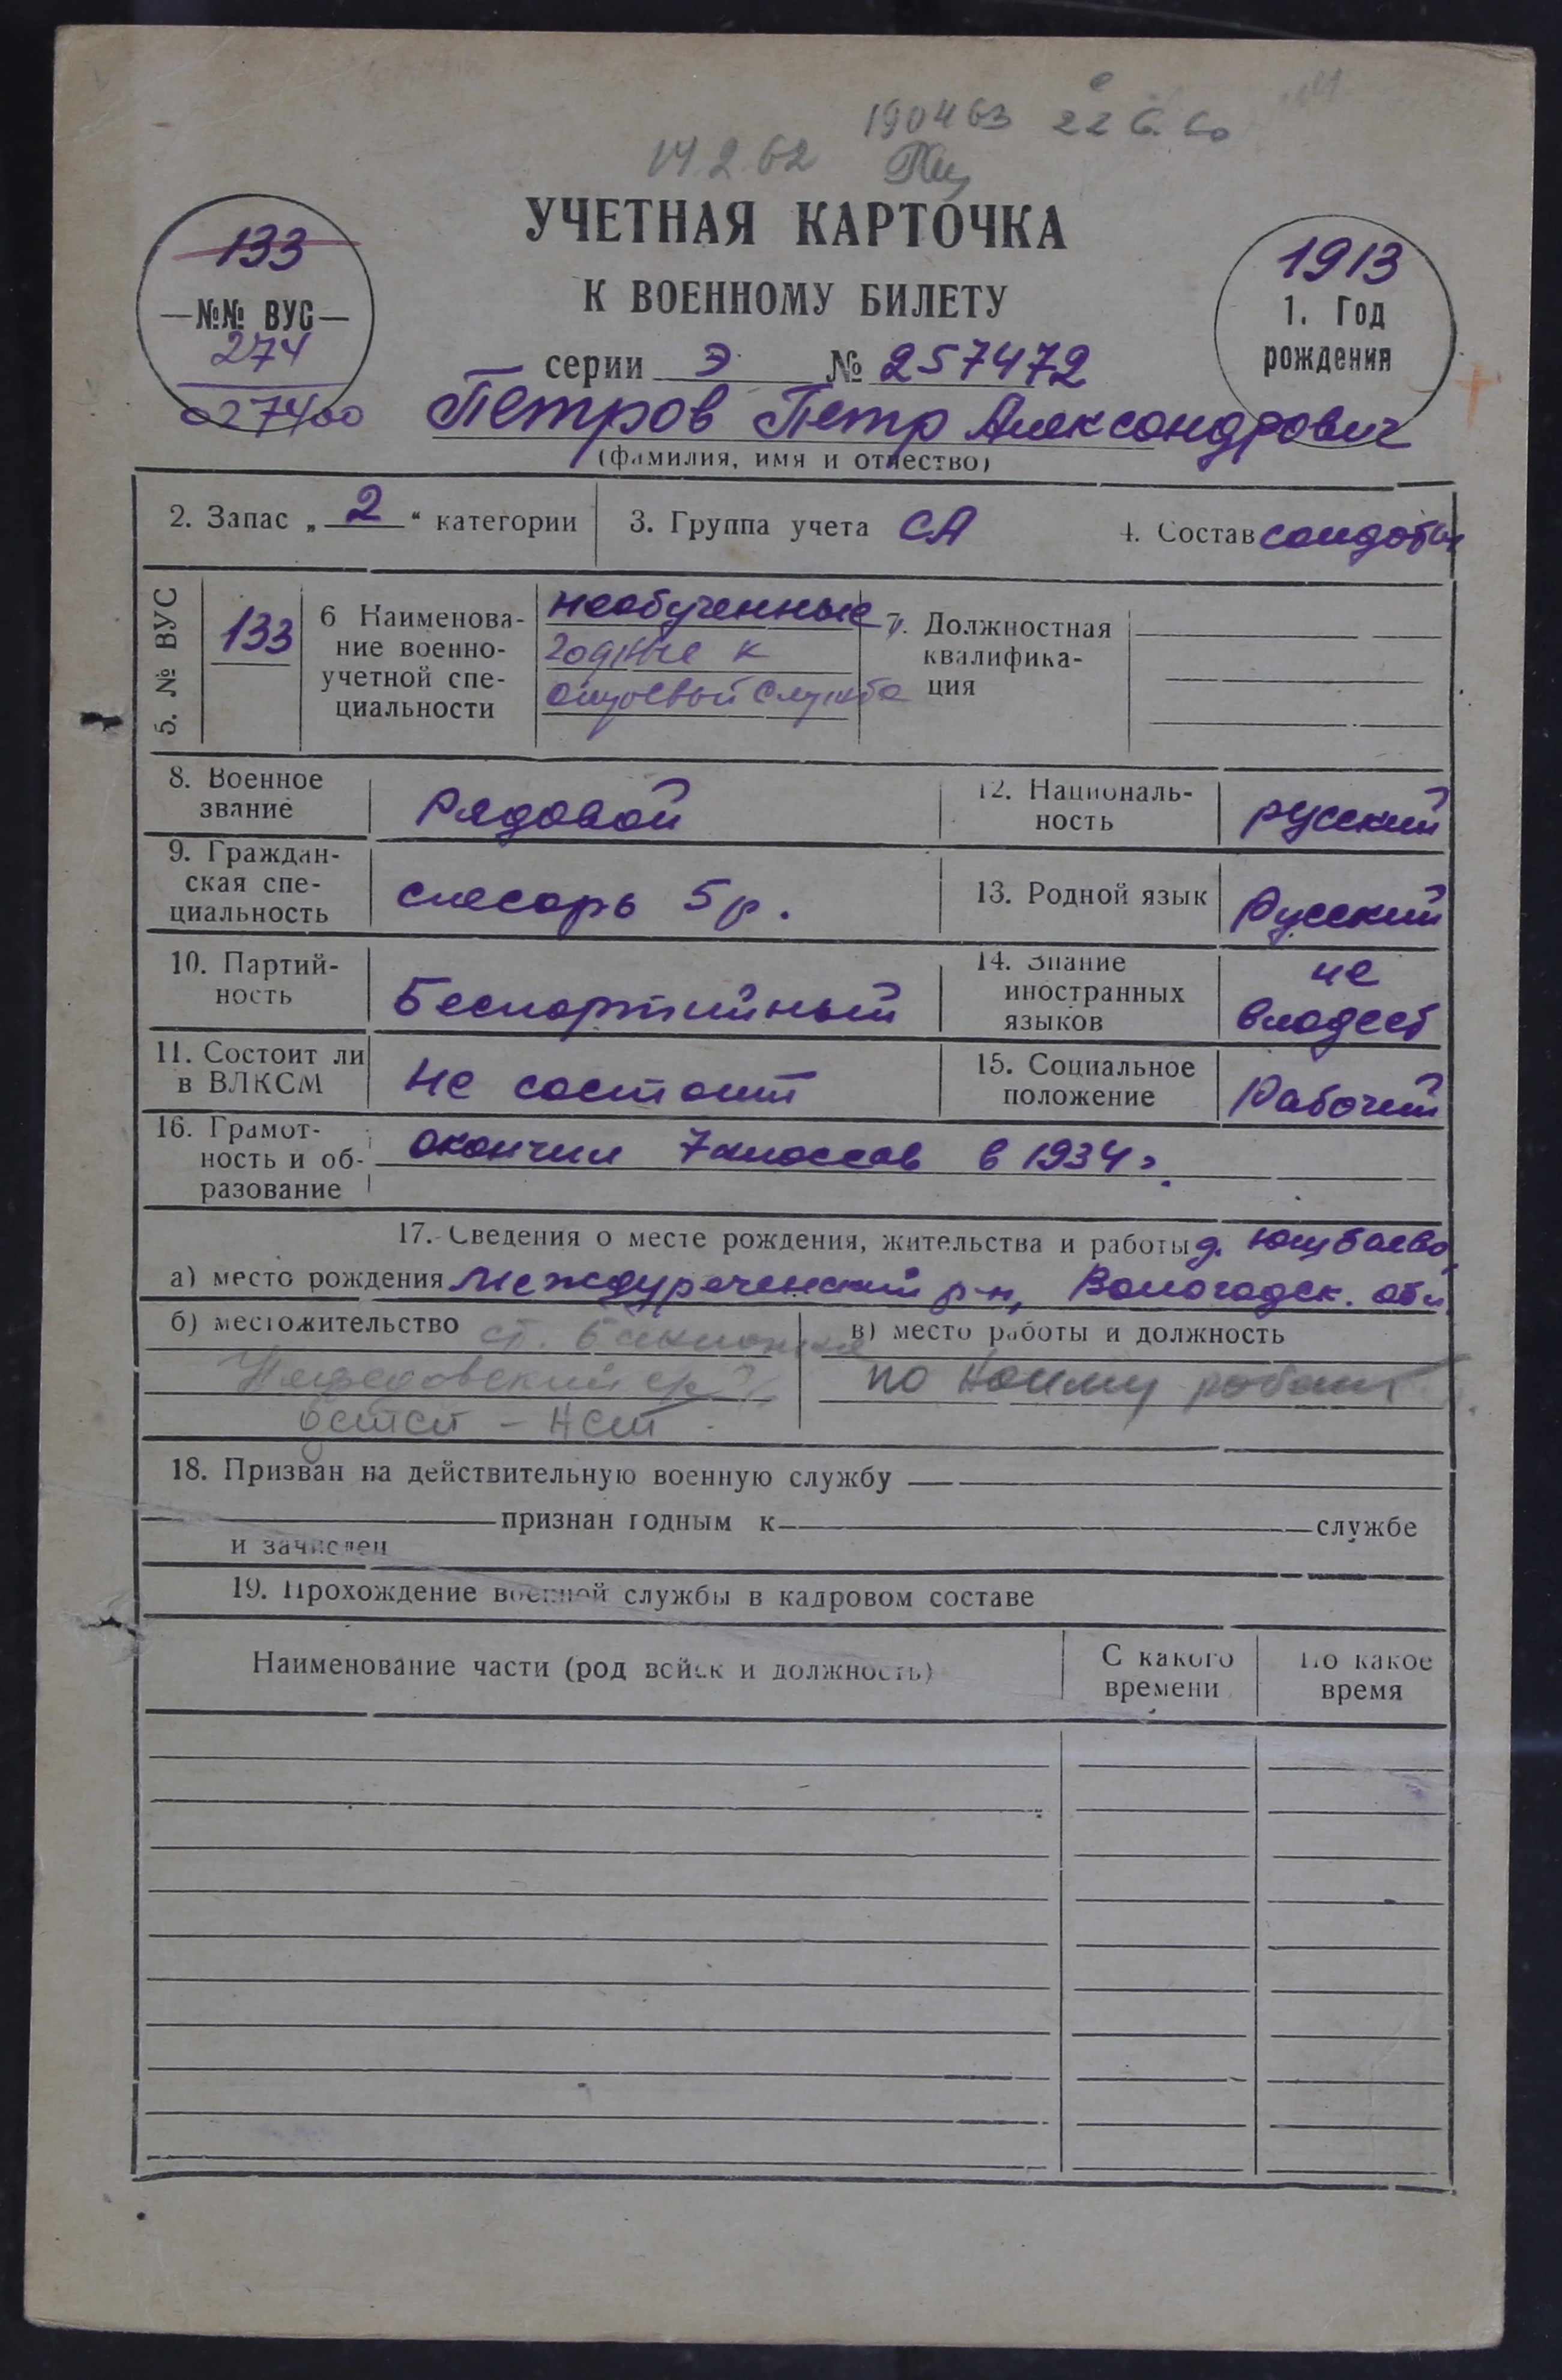 190463 22 6. 60
14.2.62
УЧЕТНАЯ КАРТОЧКА
К ВОЕННОМУ БИЛЕТУ
133
№№ ВУС
274
027400
1913
1. Год
рождения
серии Э № 257472
Петров Петр Александрович
(фамилия, имя и отчество)
2. Запас „ 2 “ категории
3. Группа учета СА
4. Состав солдаты
5. № ВУС
133
6 Наименова-
ние военно-
учетной спе-
циальности
необученные
годные к
7. Должностная
квалифика-
ция
8. Военное
звание
Рядовой
12. Националь-
ность
русский
9. Граждан-
ская спе-
циальность
слесарь 5 р.
13. Родной язык
Русский
10. Партий-
ность
Беспартийный
14. Знание
иностранных
языков
не
владеет
11. Состоит ли
в ВЛКСМ
не состоит
15. Социальное
положение
Рабочий
16. Грамот-
ность и об-
разование
окончил 7 классов в 1934 г.
17. Сведения о месте рождения, жительства и работы д.
а) место рождения Междуреченский р-н, Вологодск. обл
б) местожительство ст.
детей - нет
в) место работы и должность
по найму
18. Призван на действительную военную службу
признан годным к службе
и зачислен
19. Прохождение военной службы в кадровом составе
Наименование части (род войск и должность)
С какого
времени
По какое
время